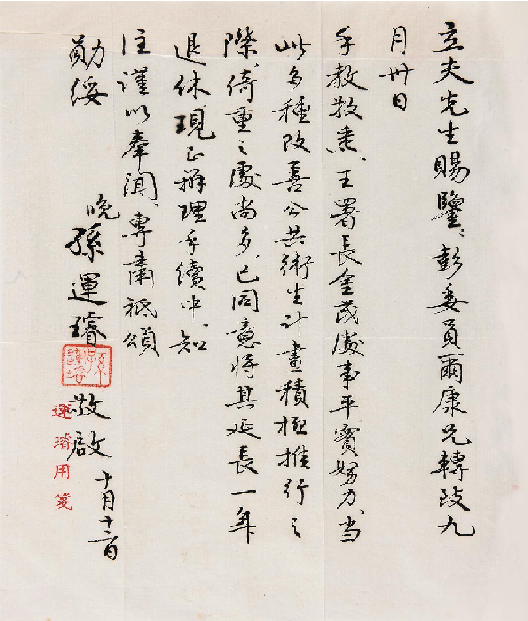 立夫先生賜鑒：彭委員爾康兄轉致九
月卅日
手教敬悉、王署長金茂處事平實努力、當
此多種改善公共衛生計畫積極推行之
際、倚重之處尚多、已同意將其延長一年
退休現正辦理手續中、知
注謹以奉聞、專肅祗頌
勛綏
晚 孫運璿 敬啟 十月十二日
運璿用箋